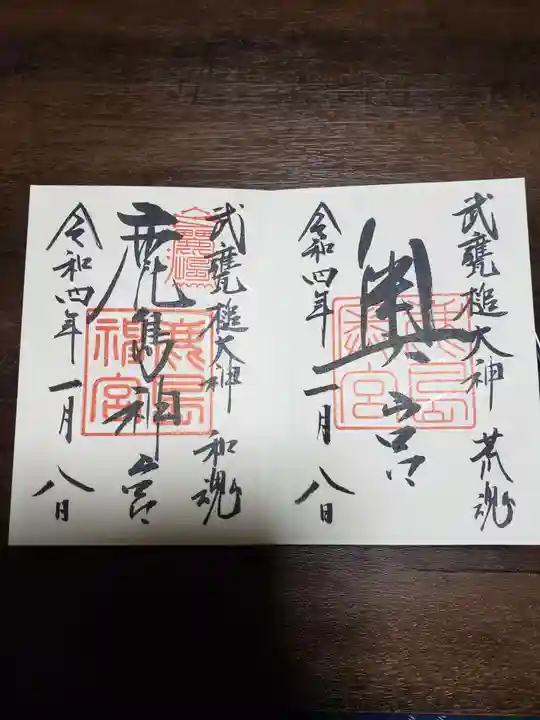 武甕槌大神 荒魂
奥宮
鹿島
奥宮
令和四年一月八日
武甕槌大神 和魂
鹿島神宮
鹿島
神宮
令和四年一月八日